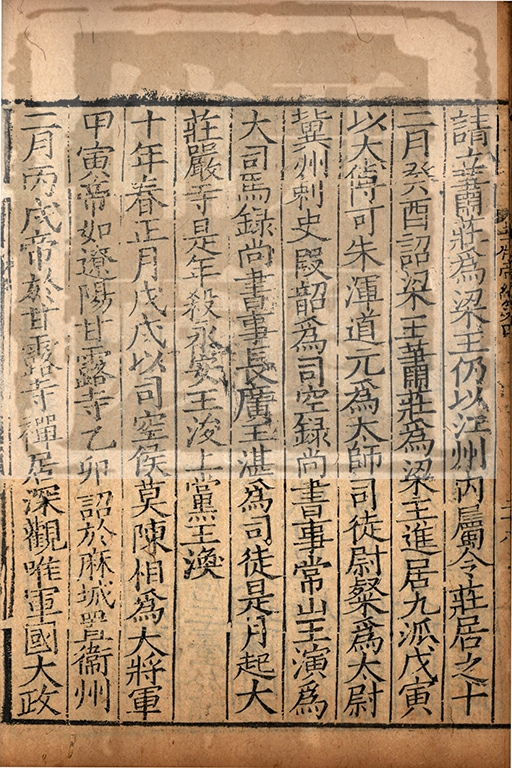 請立蕭莊爲梁主仍以江州內屬令莊居之十
二月癸酉詔梁王蕭莊爲梁主進居九派戊寅
以太傅可朱渾道元爲太師司徒尉粲爲太尉
冀州刺史段韶爲司空録尚書事常山王演爲
大司馬録尚書事長廣王湛爲司徒是月起大
莊嚴寺是年殺永安王浚上黨王渙
十年春正月戊戌以司空侯莫陳相爲大將軍
甲寅帝如遼陽甘露寺乙卯詔於麻城置衞州
二月丙戌帝於甘露寺禪居深觀唯軍國大政